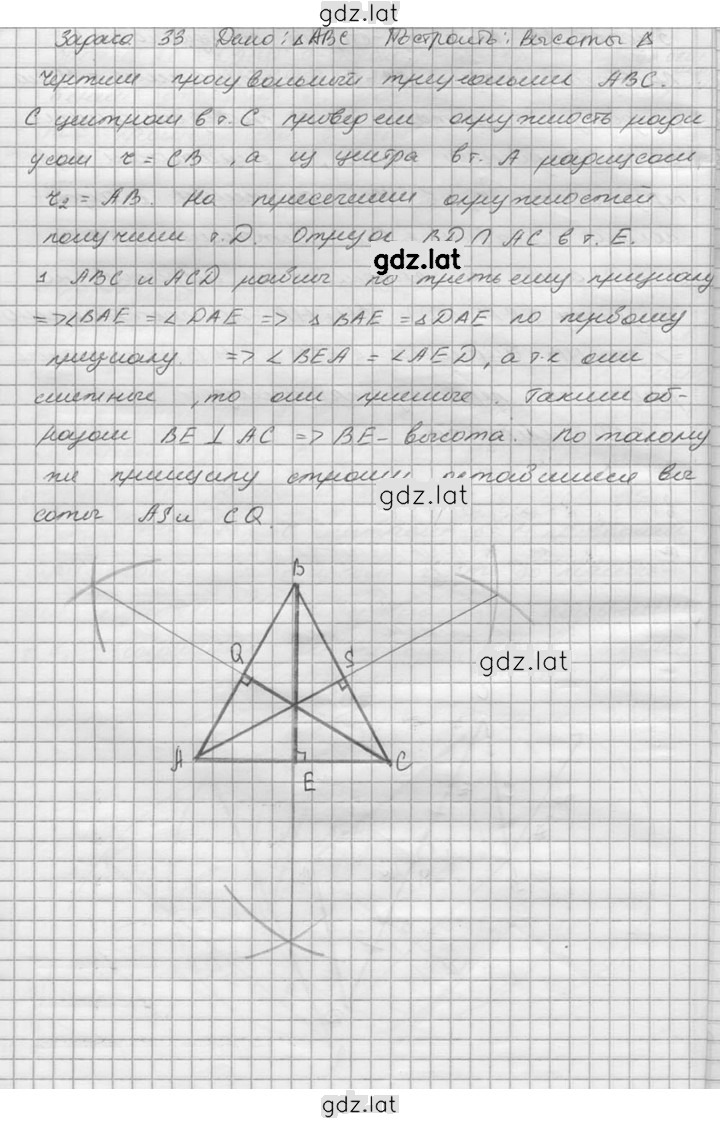 gdz.lat
Задача 33 Дано: △ABC Построить: высоты △
Чертим произвольный треугольник ABC.
С центром в т. C проведем окружность ради
усом r = CB, а из центра в т. A радиусом
r₂ = AB. На пересечении окружностей
получим т. D. Отрезок BD ∩ AC в т. E.
gdz.lat
△ ABC и ACD равны по третьему признаку
=> ∠BAE = ∠DAE => △ BAE = △DAE по первому
признаку. => ∠BEA = ∠AED, а т.к они
смежные, то они прямые. Таким об-
разом BE ⊥ AC => BE - высота. По такому
же принципу строим оставшиеся вы
gdz.lat
соты AS и CQ.
B
Q
S
gdz.lat
A
C
E
gdz.lat